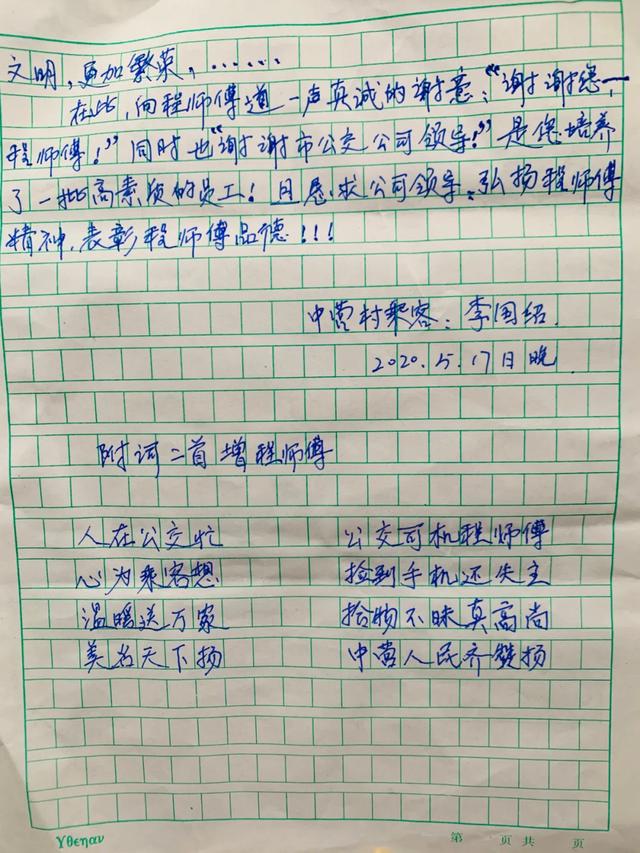 文明，更加繁荣，……
在此，向程师傅道一声真诚的谢意："谢谢您，
程师傅！"同时也"谢谢市公交公司领导！"是您培养
了一批高素质的员工！且恳求公司领导：弘扬程师傅
精神，表彰程师傅品德！！！
中营村乘客：李国绍.
2020.5.17日晚
附词二首增程师傅
人在公交忙 公交司机程师傅
心为乘客想 捡到手机还失主
温暖送万家 拾物不昧真高尚
美名天下扬 中营人民齐赞扬
Yθεηαν
第 页共 页